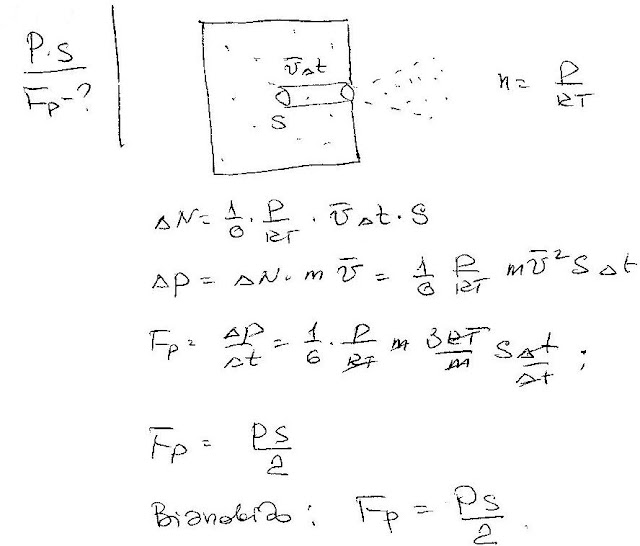 P.S
Fp-?
v̄Δt
S
n = P/kT
ΔN = 1/6 · P/kT · v̄Δt · S
Δp = ΔN · m v̄ = 1/6 P/kT m v̄² S Δt
Fp = Δp/Δt = 1/6 · P/kT m 3kT/m S Δt/Δt ;
Fp = PS/2
Відповідь: Fp = PS/2.